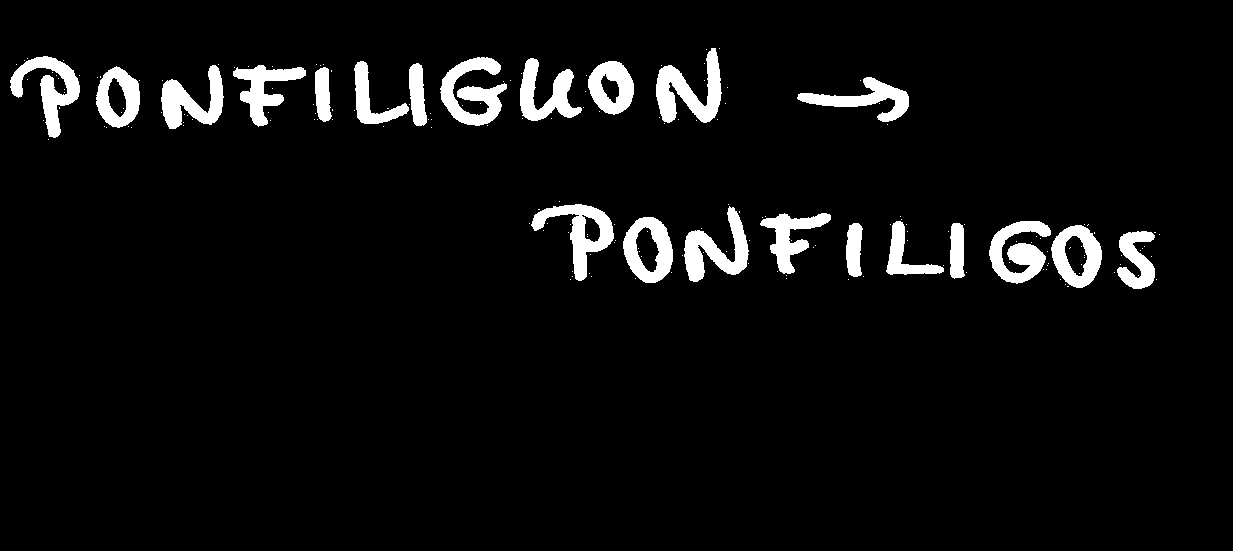 PONFILIGUON →
PONFILIGOS